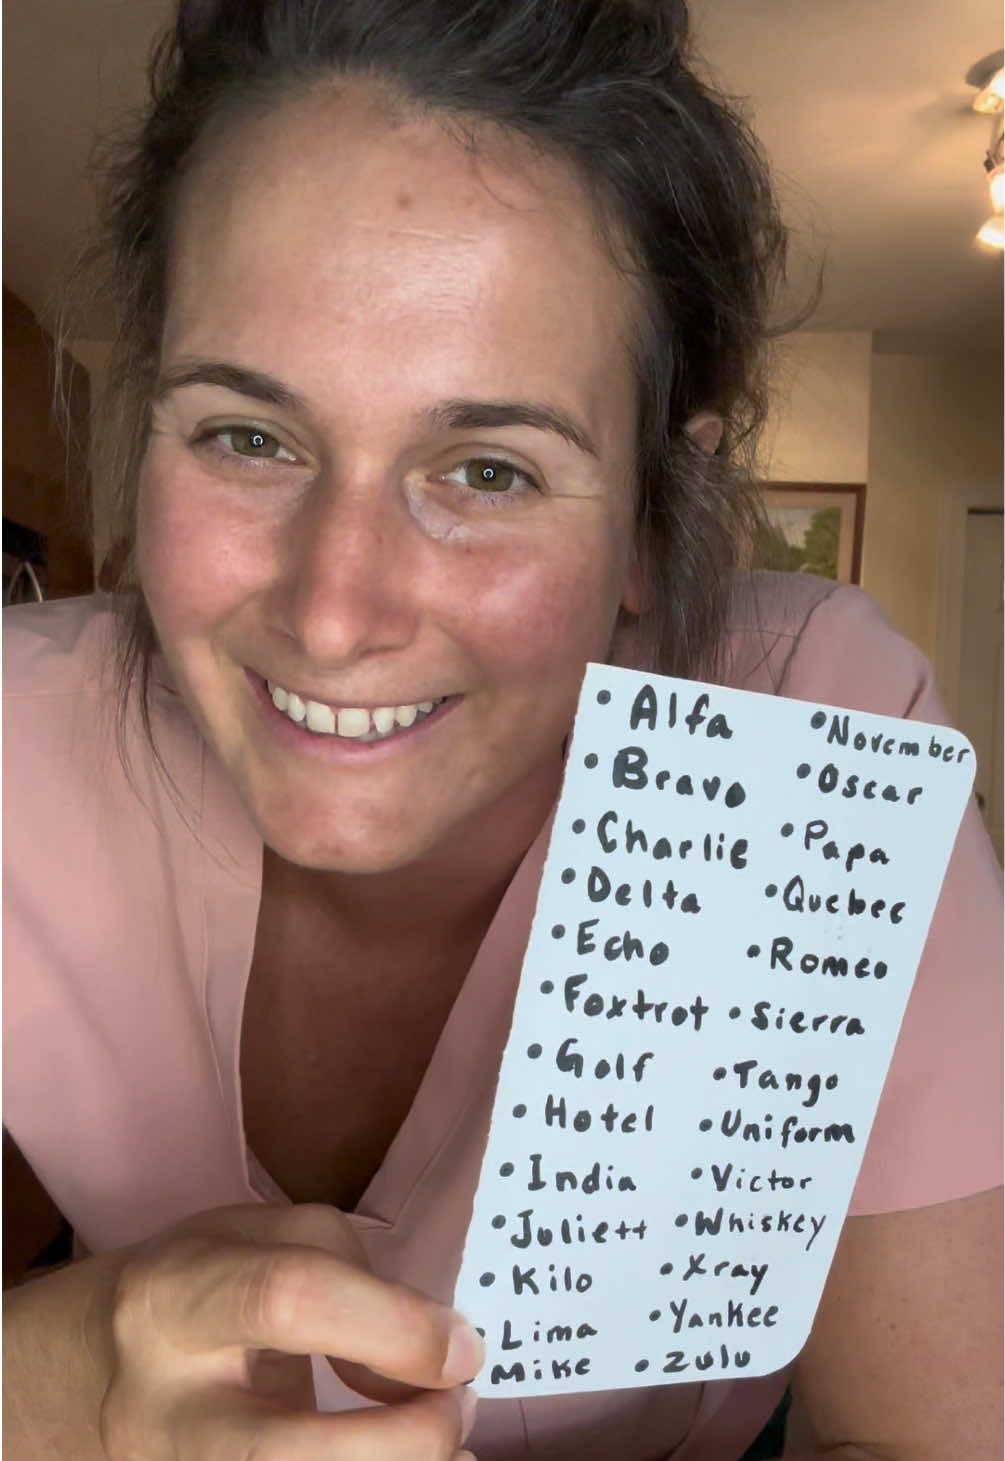 • Alfa
• Bravo
• Charlie
• Delta
• Echo
• Foxtrot
• Golf
• Hotel
• India
• Juliett
• Kilo
• Lima
• Mike
• November
• Oscar
• Papa
• Quebec
• Romeo
• Sierra
• Tango
• Uniform
• Victor
• Whiskey
• Xray
• Yankee
• Zulu